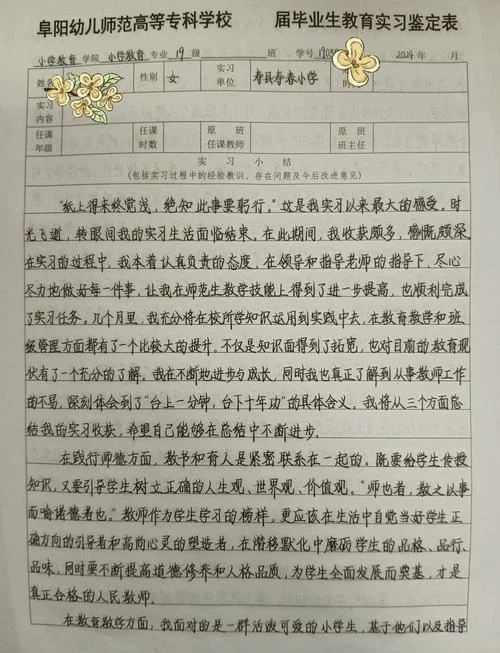 阜阳幼儿师范高等专科学校 届毕业生教育实习鉴定表
小学教育 学院 小学教育 专业 19 级 班 学号 1905 2021 年 月
姓名 性别 女 实习单位 寿县寿春小学 时
实习内容
任课年级 任课时数 原班任课教师 原班班主任
实 习 小 结
(包括实习过程中的经验教训、存在问题及今后改进意见)
“纸上得来终觉浅，绝知此事要躬行。”这是我实习以来最大的感受。时
光飞逝，转眼间我的实习生活面临结束。在此期间，我收获颇多，感慨颇深。
在实习的过程中，我本着认真负责的态度，在领导和指导老师的指导下，尽心
尽力地做好每一件事，让我在师范生教学技能上得到了进一步提高，也顺利完成
了实习任务。几个月里，我充分将在校所学知识运用到实践中去，在教育教学和班
级管理方面都有了一个比较大的提升。不仅是知识面得到了拓宽，也对目前的教育现
状有了一个充分的了解。我在不断地进步与成长，同时我也真正了解到从事教师工作
的不易，深刻体会到了“台上一分钟，台下十年功”的具体含义。我将从三个方面总
结我的实习收获，希望自己能够在总结中不断进步。
在践行师德方面，教书和育人是紧密联系在一起的。既要给学生传授
知识，又要引导学生树立正确的人生观、世界观、价值观。“师也者，教之以事
而喻诸德者也。”教师作为学生学习的榜样，更应该在生活中自觉当好学生正
确方向的引导者和高尚心灵的塑造者，在潜移默化中磨砺学生的品格、品行、
品味，同时要不断提高道德修养和人格品质，为学生全面发展而奠基，才是
真正合格的人民教师。
在教育教学方面，我面对的是一群活泼可爱的小学生，基于他们以及指导